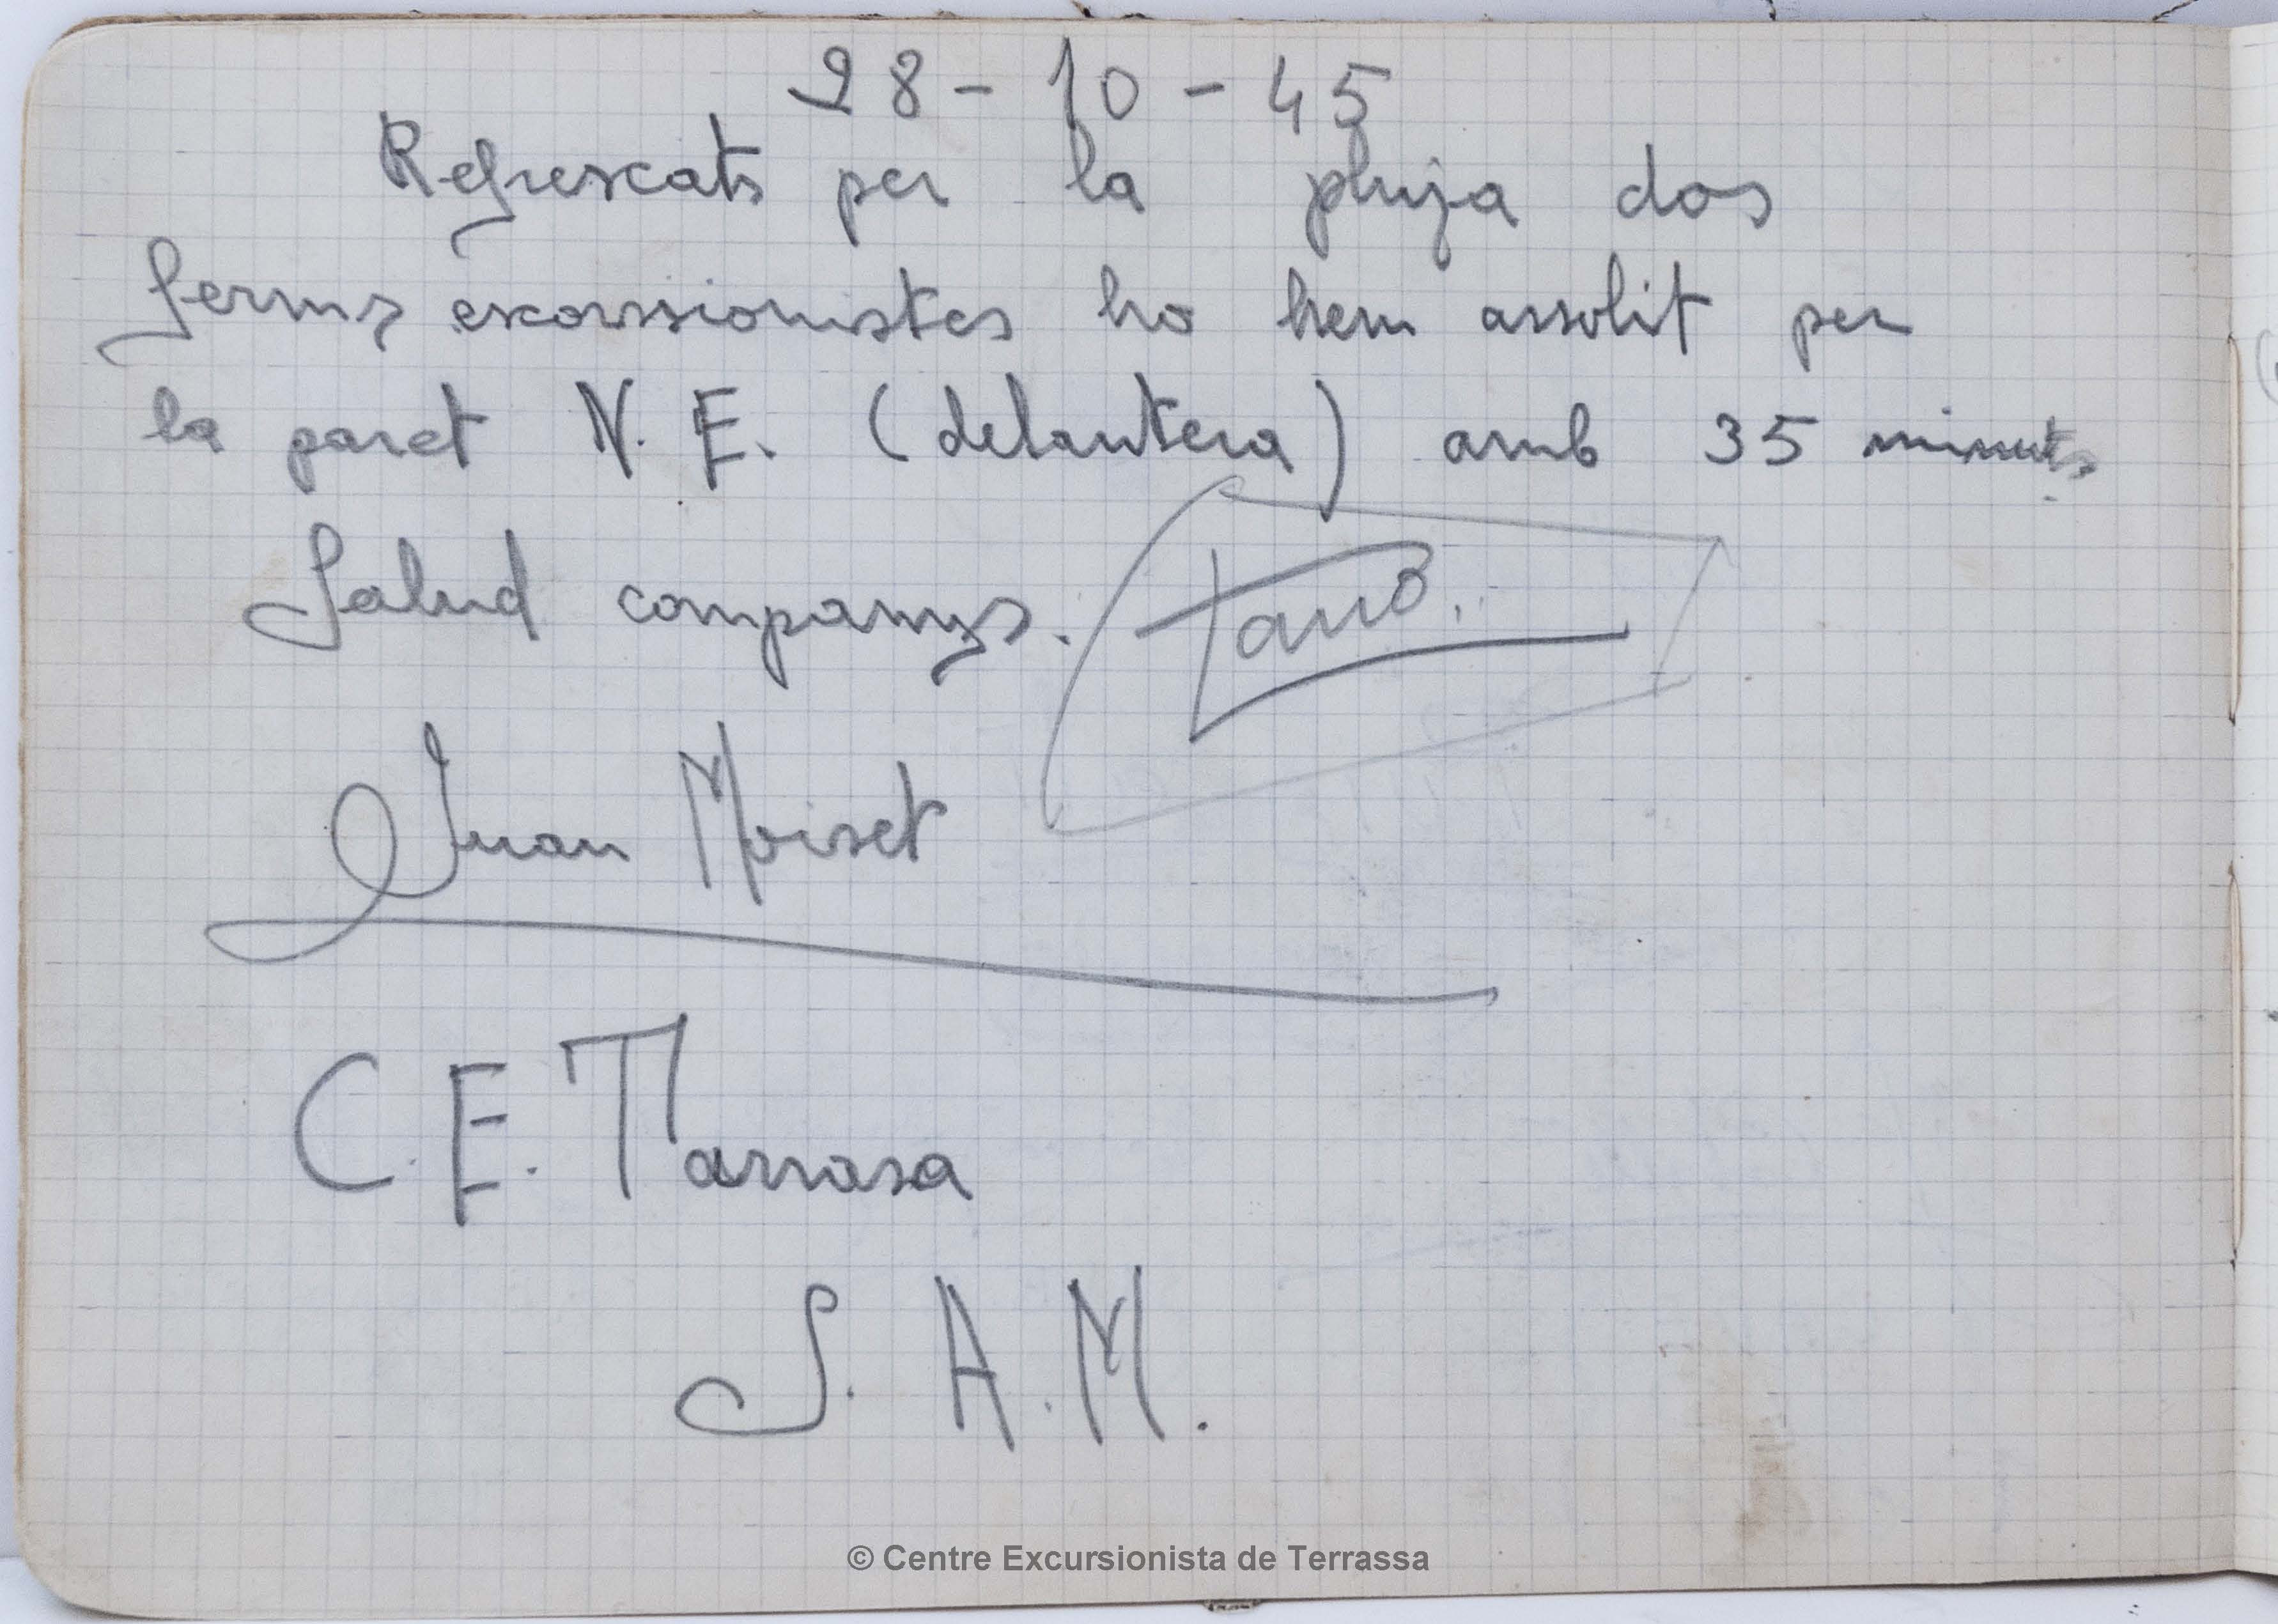 28 - 10 - 45
Refrescats per la pluja dos
ferms excorssionistes ho hem assolit per
la paret N. E. (delantera) amb 35 minuts
Salud companys.
Juan Moiset
C. E. Tarrasa
S. A. M.
© Centre Excursionista de Terrassa